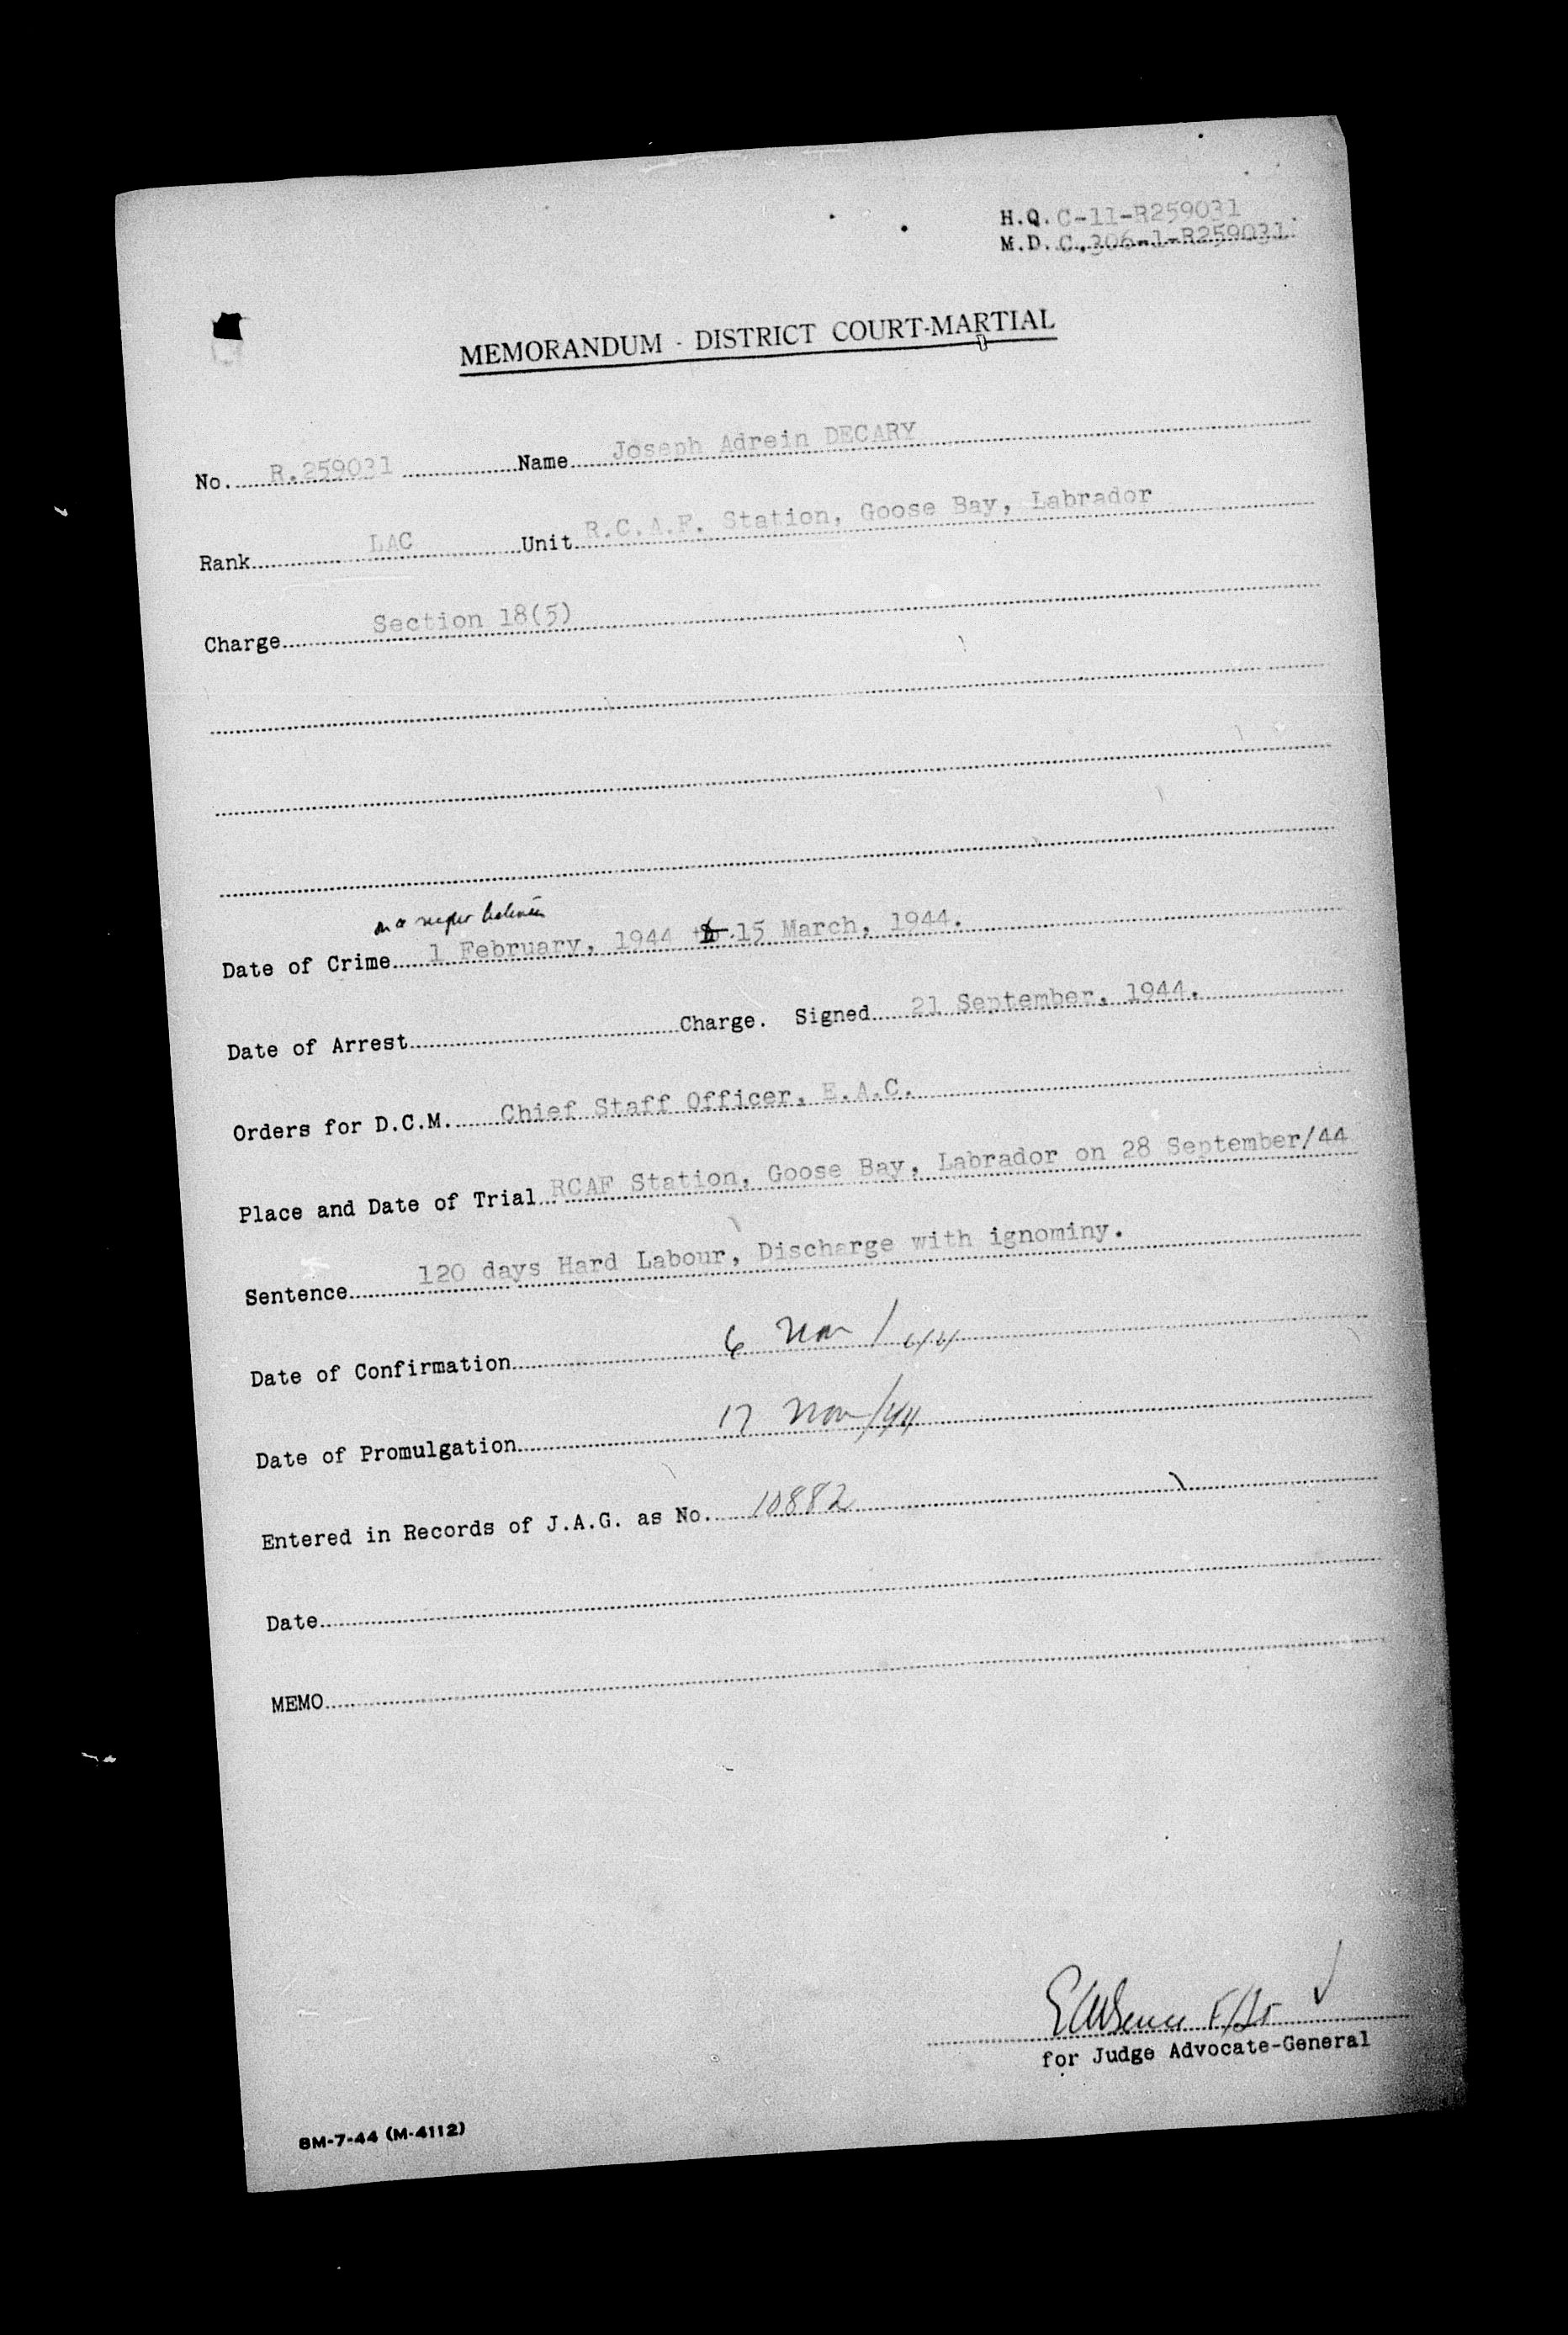 H.Q. C-11-R259031
M.D. C.306-1-R259031
MEMORANDUM - DISTRICT COURT-MARTIAL
No. R.259031 Name Joseph Adrein DECARY
Rank LAC Unit R.C.A.F. Station, Goose Bay, Labrador
Charge Section 18(5)
on or between
Date of Crime 1 February, 1944 to 15 March, 1944.
Date of Arrest Charge. Signed 21 September, 1944.
Orders for D.C.M. Chief Staff Officer, E.A.C.
Place and Date of Trial RCAF Station, Goose Bay, Labrador on 28 September/44
Sentence 120 days Hard Labour, Discharge with ignominy.
Date of Confirmation 6 Nov/44
Date of Promulgation 17 Nov/44
Entered in Records of J.A.G. as No. 10882
Date
MEMO
F/Lt
for Judge Advocate-General
8M-7-44 (M-4112)